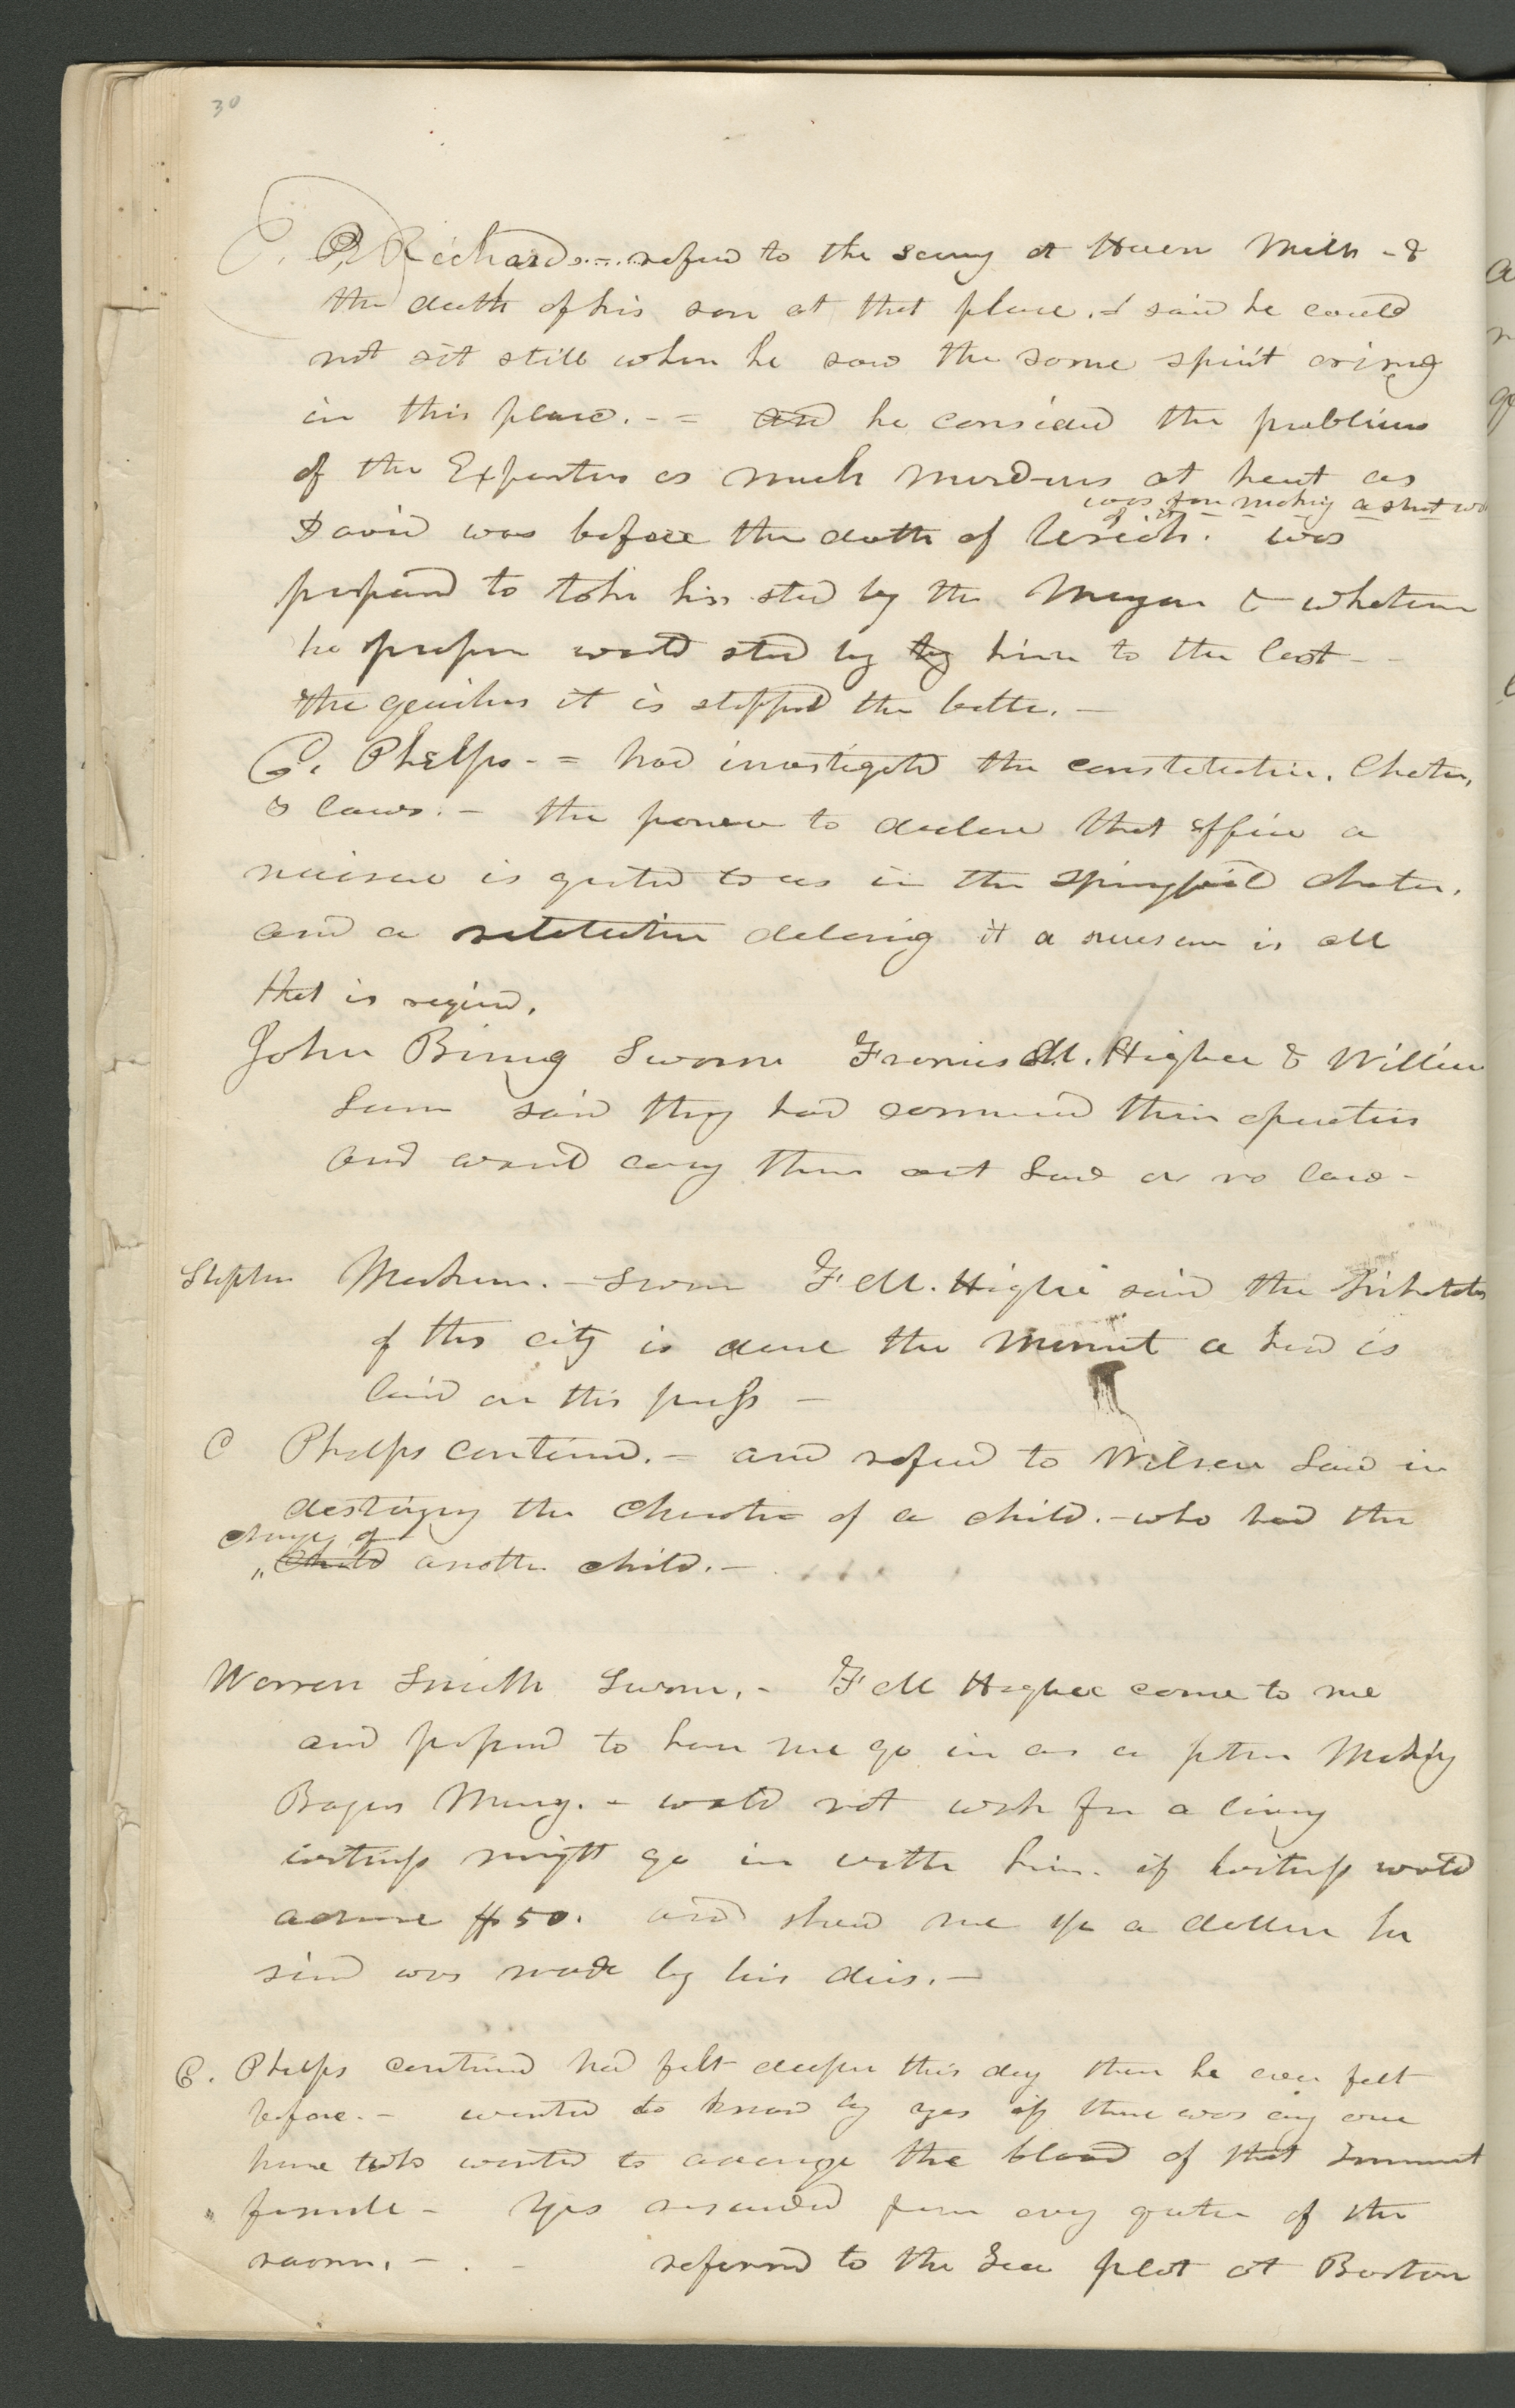 30
C. P. Richards.... refered to the scenery at Haven Mills - &
the death of his son at that place. & said he could
not sit still when he saw the same spirit arisng
in this place. - = and he considerd the publishers
of the Expositor as much murderers at heart as
was for making a short work of it
David was before the death of Uriah. was
prepared to take his stad by the Mayor & whatever
he propose would stad by by him to the last -
the quicker it is stopped the better. -
C. Phelps - = had investigated the constitution. Charter,
& laws. - the power to declare that office a
nuisance is granted to us in the springfield charter.
and a resolution declaring it a nuisance is all
that is required.
John Birney Sworn Francis M. Higbee & William
Law said they had commenced their operations
and would carry them out Law or no law -
Stephen Markham. - Sworn F M. Higbie said the Inhabitats
of this city is done the minut a hand is
laid on this press -
C Phelps continued. - and refered to Wilson Law in
destroying the character of a child. - who had the
charge of
" Child another child. -
Warren Smith Sworn. - F M Higbee came to me
and proposed to have me go in as a ptner Makig
Bogus Money. - would not work for a living
witness might go in with him. if witness would
advance $50. and shewed me ½ a dollar he
said was made by his dies. -
C. Phelps continued had felt deeper this day than he ever felt
before. - wanted to know by yes if there was any one
here who wanted to avenge the blood of that Innocent
" female - Yes resounded from every quarter of the
room. - . - referred to the Tea plot at Boston